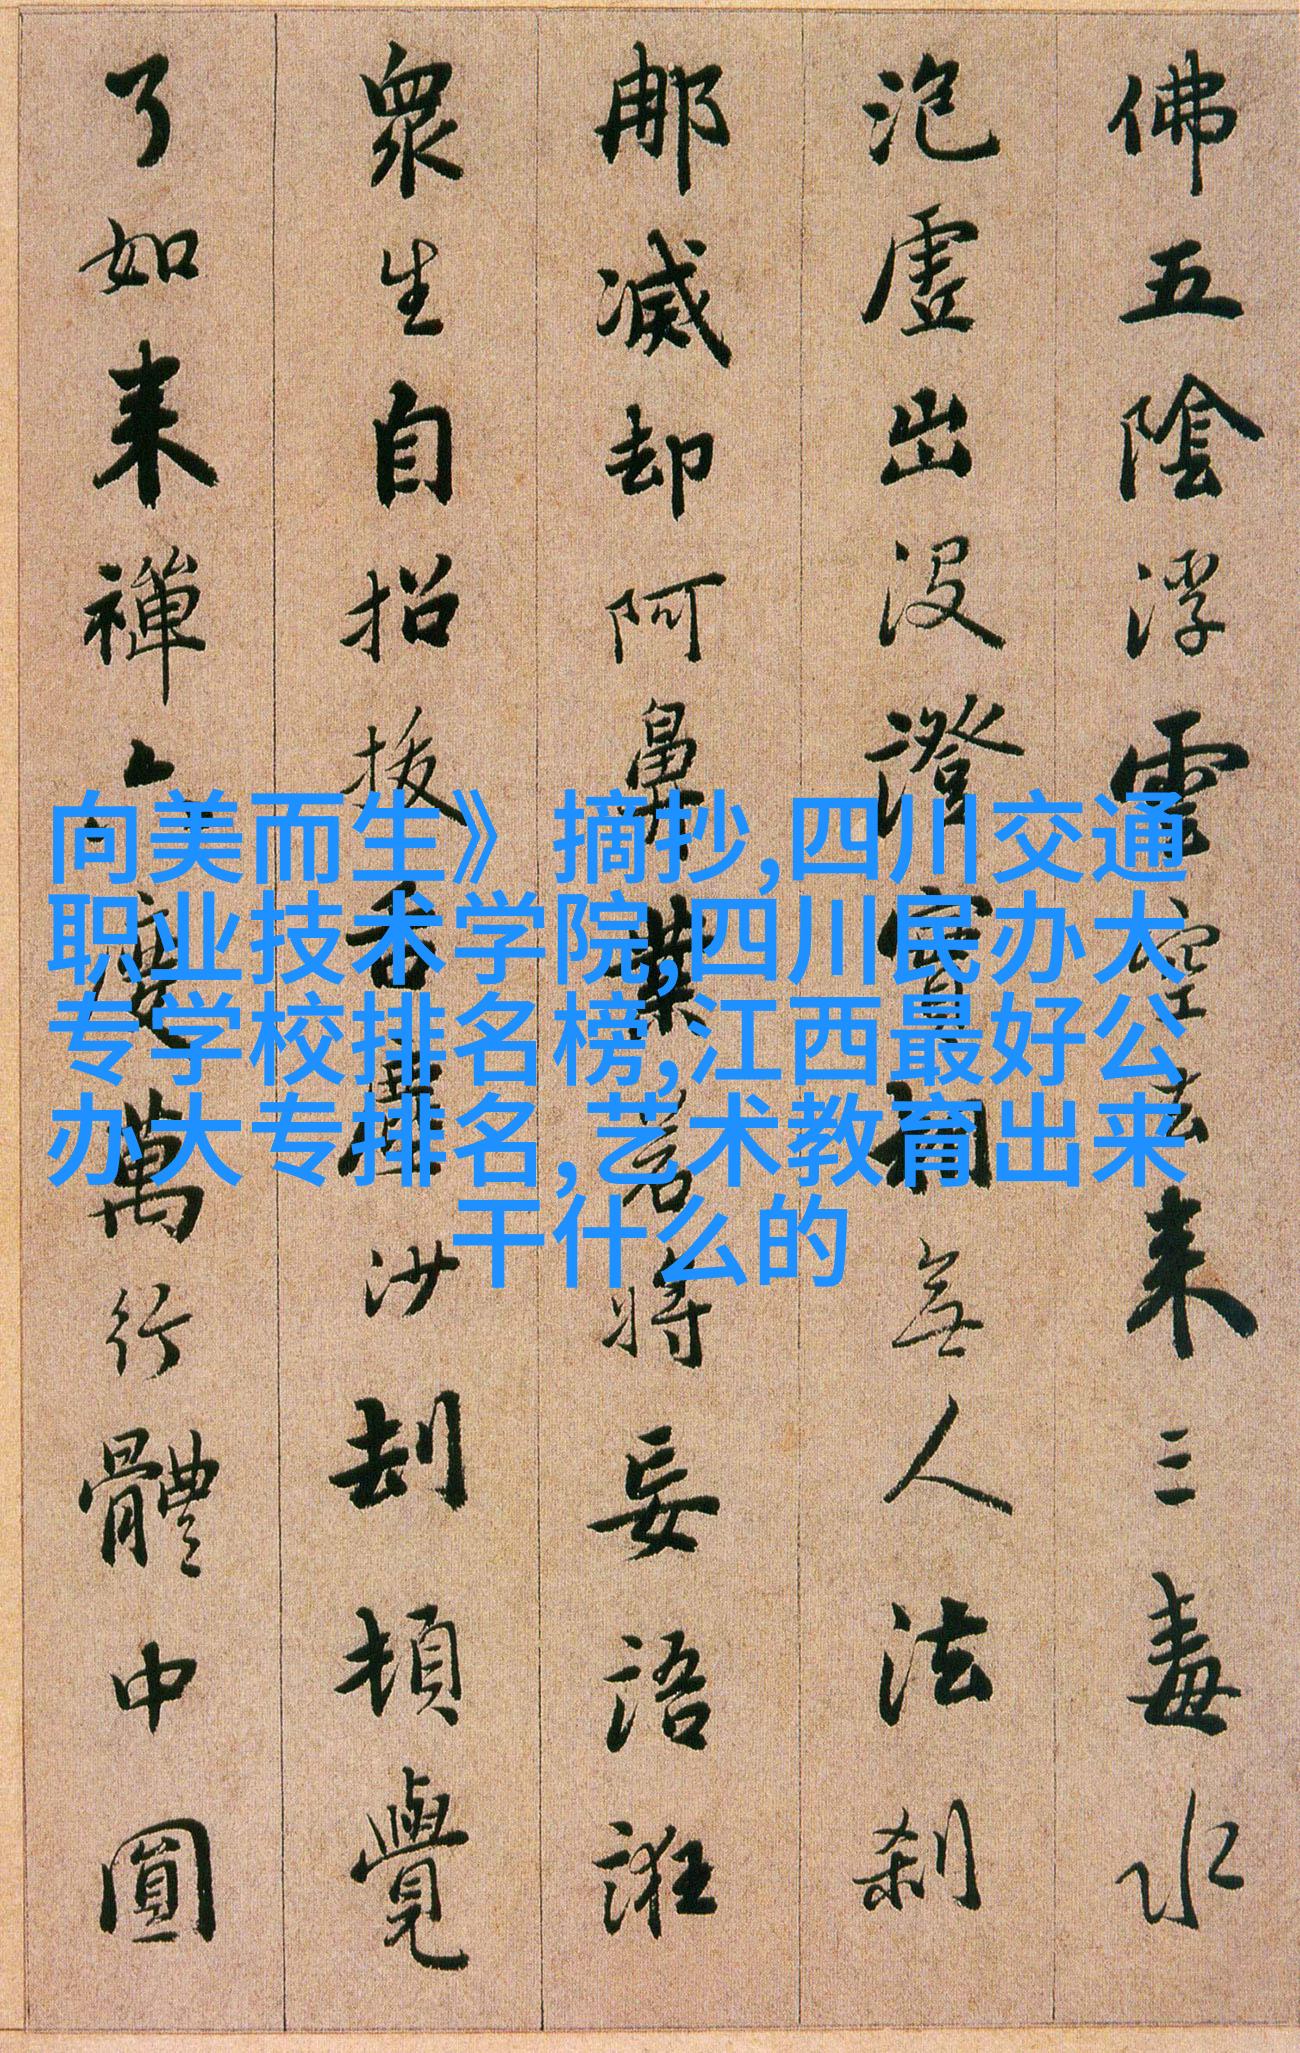 佛五陰浮雲空去来三毒水
泡虛出没證實相無人法刹
那滅却阿鼻業若將妄語誑
衆生自招拔舌塵沙劫頓覺
了如来禪六度萬行體中圓
向美而生》摘抄,四川交通
职业技术学院,四川民办大
专学校排名榜,江西最好公
办大专排名,艺术教育出来
干什么的